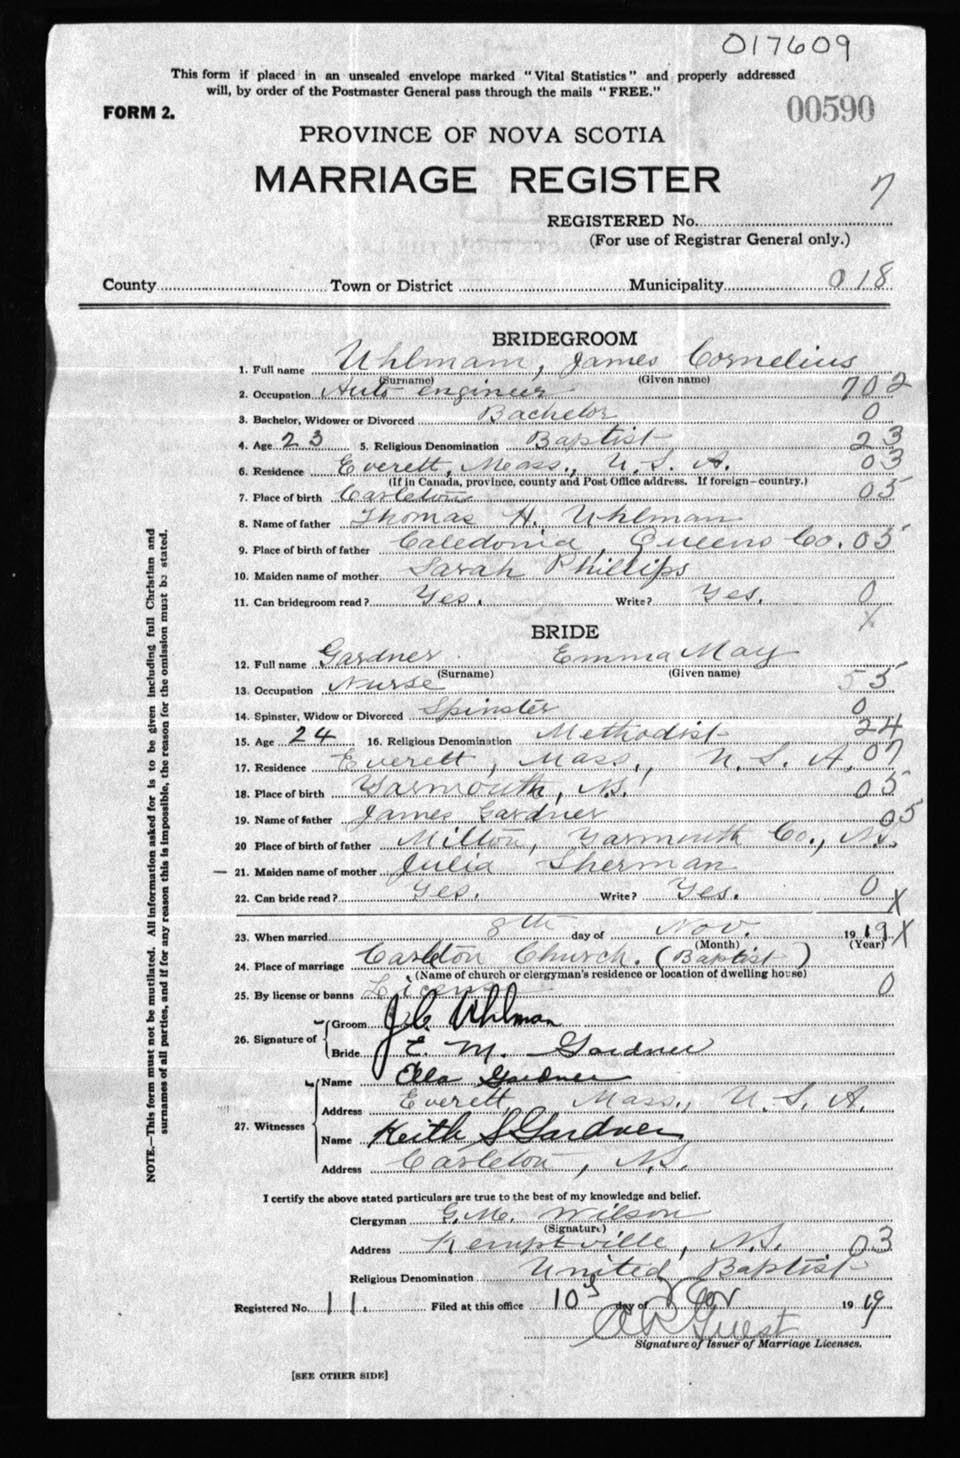 017609
This form if placed in an unsealed envelope marked "Vital Statistics" and properly addressed
will, by order of the Postmaster General pass through the mails "FREE."
FORM 2.
00590
PROVINCE OF NOVA SCOTIA
MARRIAGE REGISTER
7
REGISTERED No.
(For use of Registrar General only.)
County Town or District Municipality 018
BRIDEGROOM
1. Full name Uhlmam, James Cornelius
(Surname) (Given name)
2. Occupation Auto engineer 702
3. Bachelor, Widower or Divorced Bachelor 0
4. Age 23 5. Religious Denomination Baptist 23
6. Residence Everett, Mass., U. S. A. 03
(If in Canada, province, county and Post Office address. If foreign—country.)
7. Place of birth Carleton 05
8. Name of father Thomas H. Uhlman
9. Place of birth of father Caledonia, Queens Co. 05
10. Maiden name of mother Sarah Phillips
11. Can bridegroom read? Yes. Write? Yes. 0
X
BRIDE
12. Full name Gardner Emma May
(Surname) (Given name)
13. Occupation Nurse 55
14. Spinster, Widow or Divorced Spinster 0
15. Age 24 16. Religious Denomination Methodist 24
17. Residence Everett, Mass., U. S. A. 07
18. Place of birth Yarmouth, N.S. 05
19. Name of father James Gardner 05
20 Place of birth of father Milton, Yarmouth Co., N.S.
21. Maiden name of mother Julia Sherman
22. Can bride read? Yes. Write? Yes. 0 X
23. When married 8th day of Nov. 1919 X
(Month) (Year)
24. Place of marriage Carleton Church. (Baptist)
(Name of church or clergyman's residence or location of dwelling house)
25. By license or banns License 0
26. Signature of Groom J C Uhlman
Bride E. M. Gardner
27. Witnesses Name Ella Gardner
Address Everett, Mass., U. S. A.
Name Keith S Gardner
Address Carleton, N.S.
I certify the above stated particulars are true to the best of my knowledge and belief.
Clergyman G. M. Wilson
(Signature)
Address Kemptville, N.S. 03
Religious Denomination United Baptist
Registered No. 11. Filed at this office 10 day of Nov 1919
Guest
Signature of Issuer of Marriage Licenses.
[SEE OTHER SIDE]
NOTE.—This form must not be mutilated. All information asked for is to be given including full Christian and
surnames of all parties, and if for any reason this is impossible, the reason for the omission must be stated.